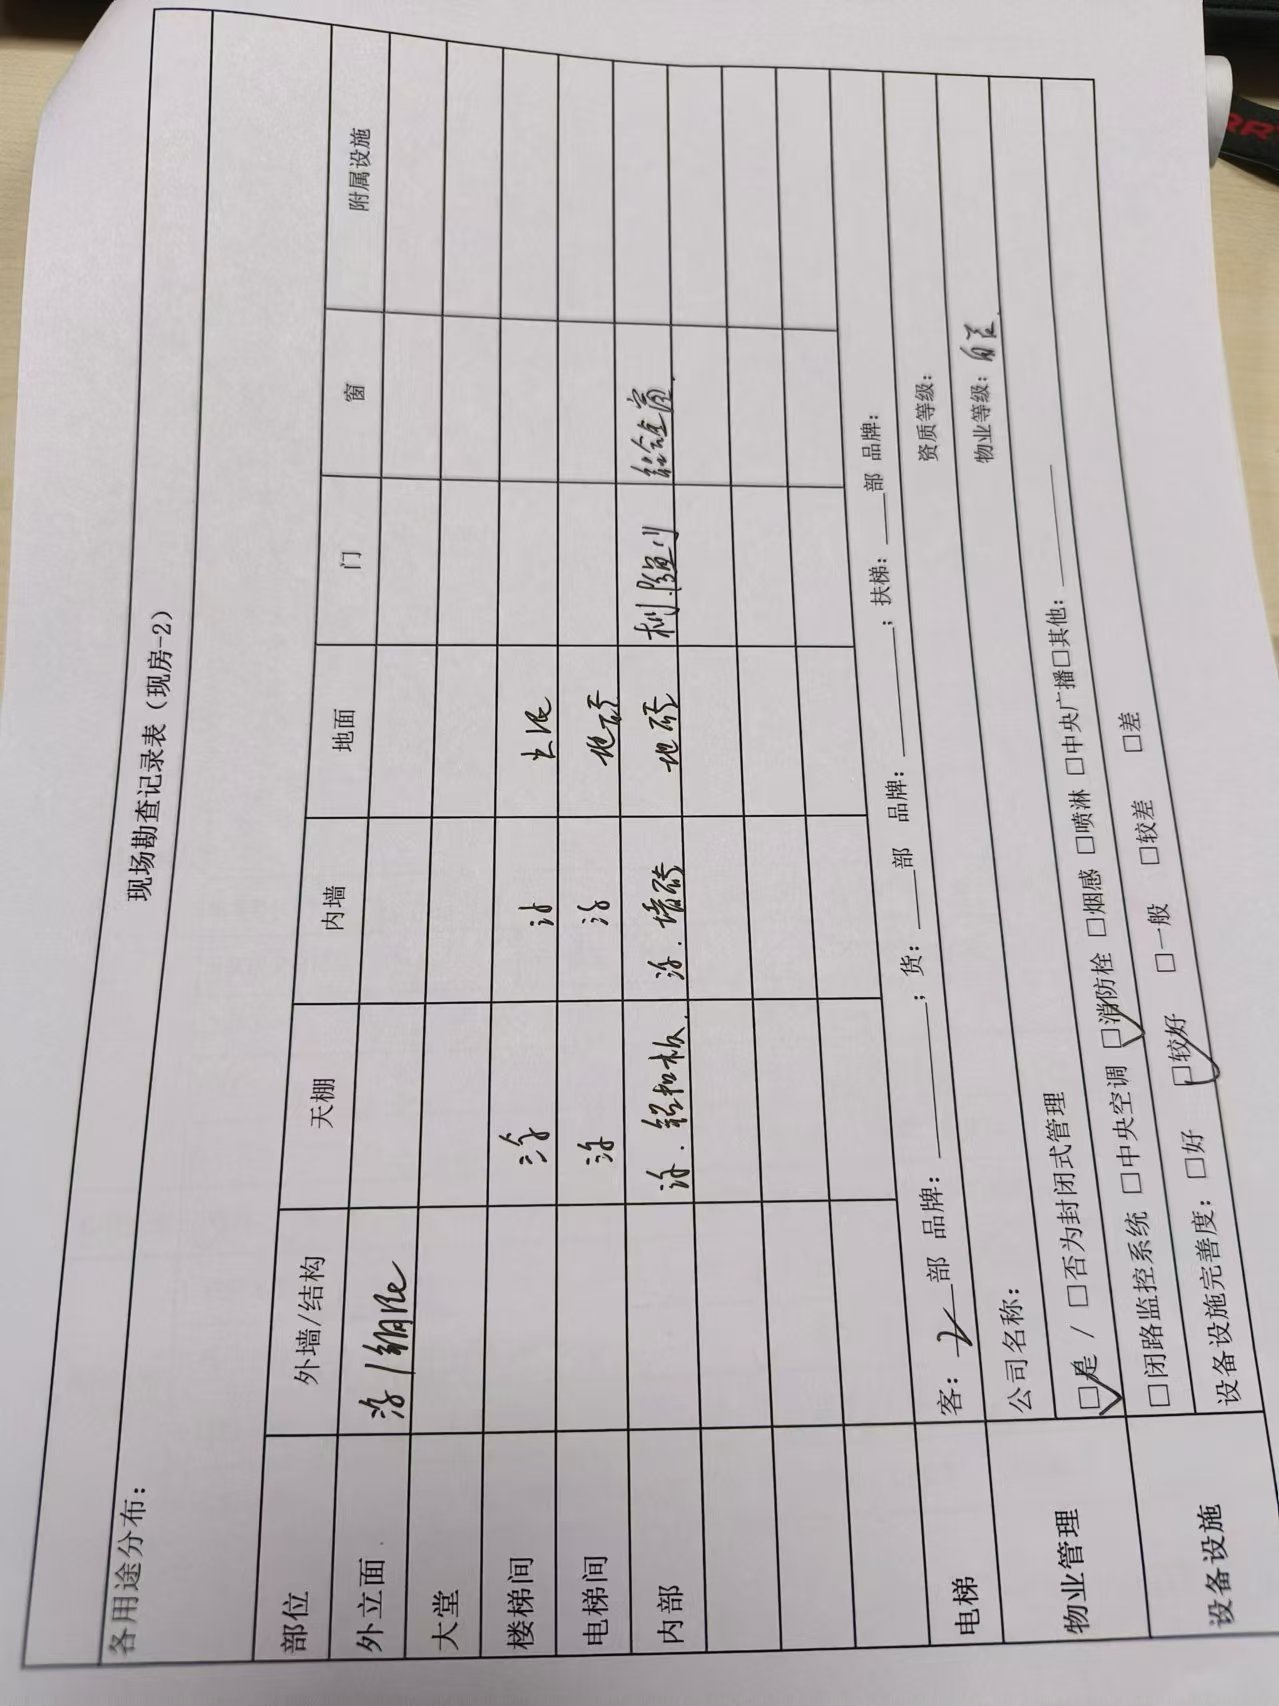 现场勘查记录表（现房-2）
各用途分布：
部位 外墙/结构 天棚 内墙 地面 门 窗 附属设施
外立面
大堂
楼梯间 涂 涂
电梯间 涂 涂 地砖
内部 涂. 铝扣板. 涂. 墙砖 地砖 铝合金窗.
电梯 客：2部 品牌：______；货：___部 品牌：______；扶梯：___部 品牌：
物业管理 公司名称： 资质等级：
☑是 / □否为封闭式管理 物业等级：
设备设施 □闭路监控系统 □中央空调 ☑消防栓 □烟感 □喷淋 □中央广播□其他：______
设备设施完善度：□好 ☑较好 □一般 □较差 □差